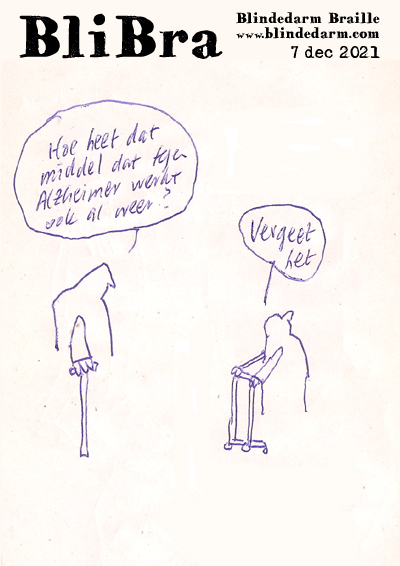 BliBra
Blindedarm Braille
www.blindedarm.com
7 dec 2021
Hoe heet dat
middel dat tegen
Alzheimer werkt
ook al weer?
Vergeet
het